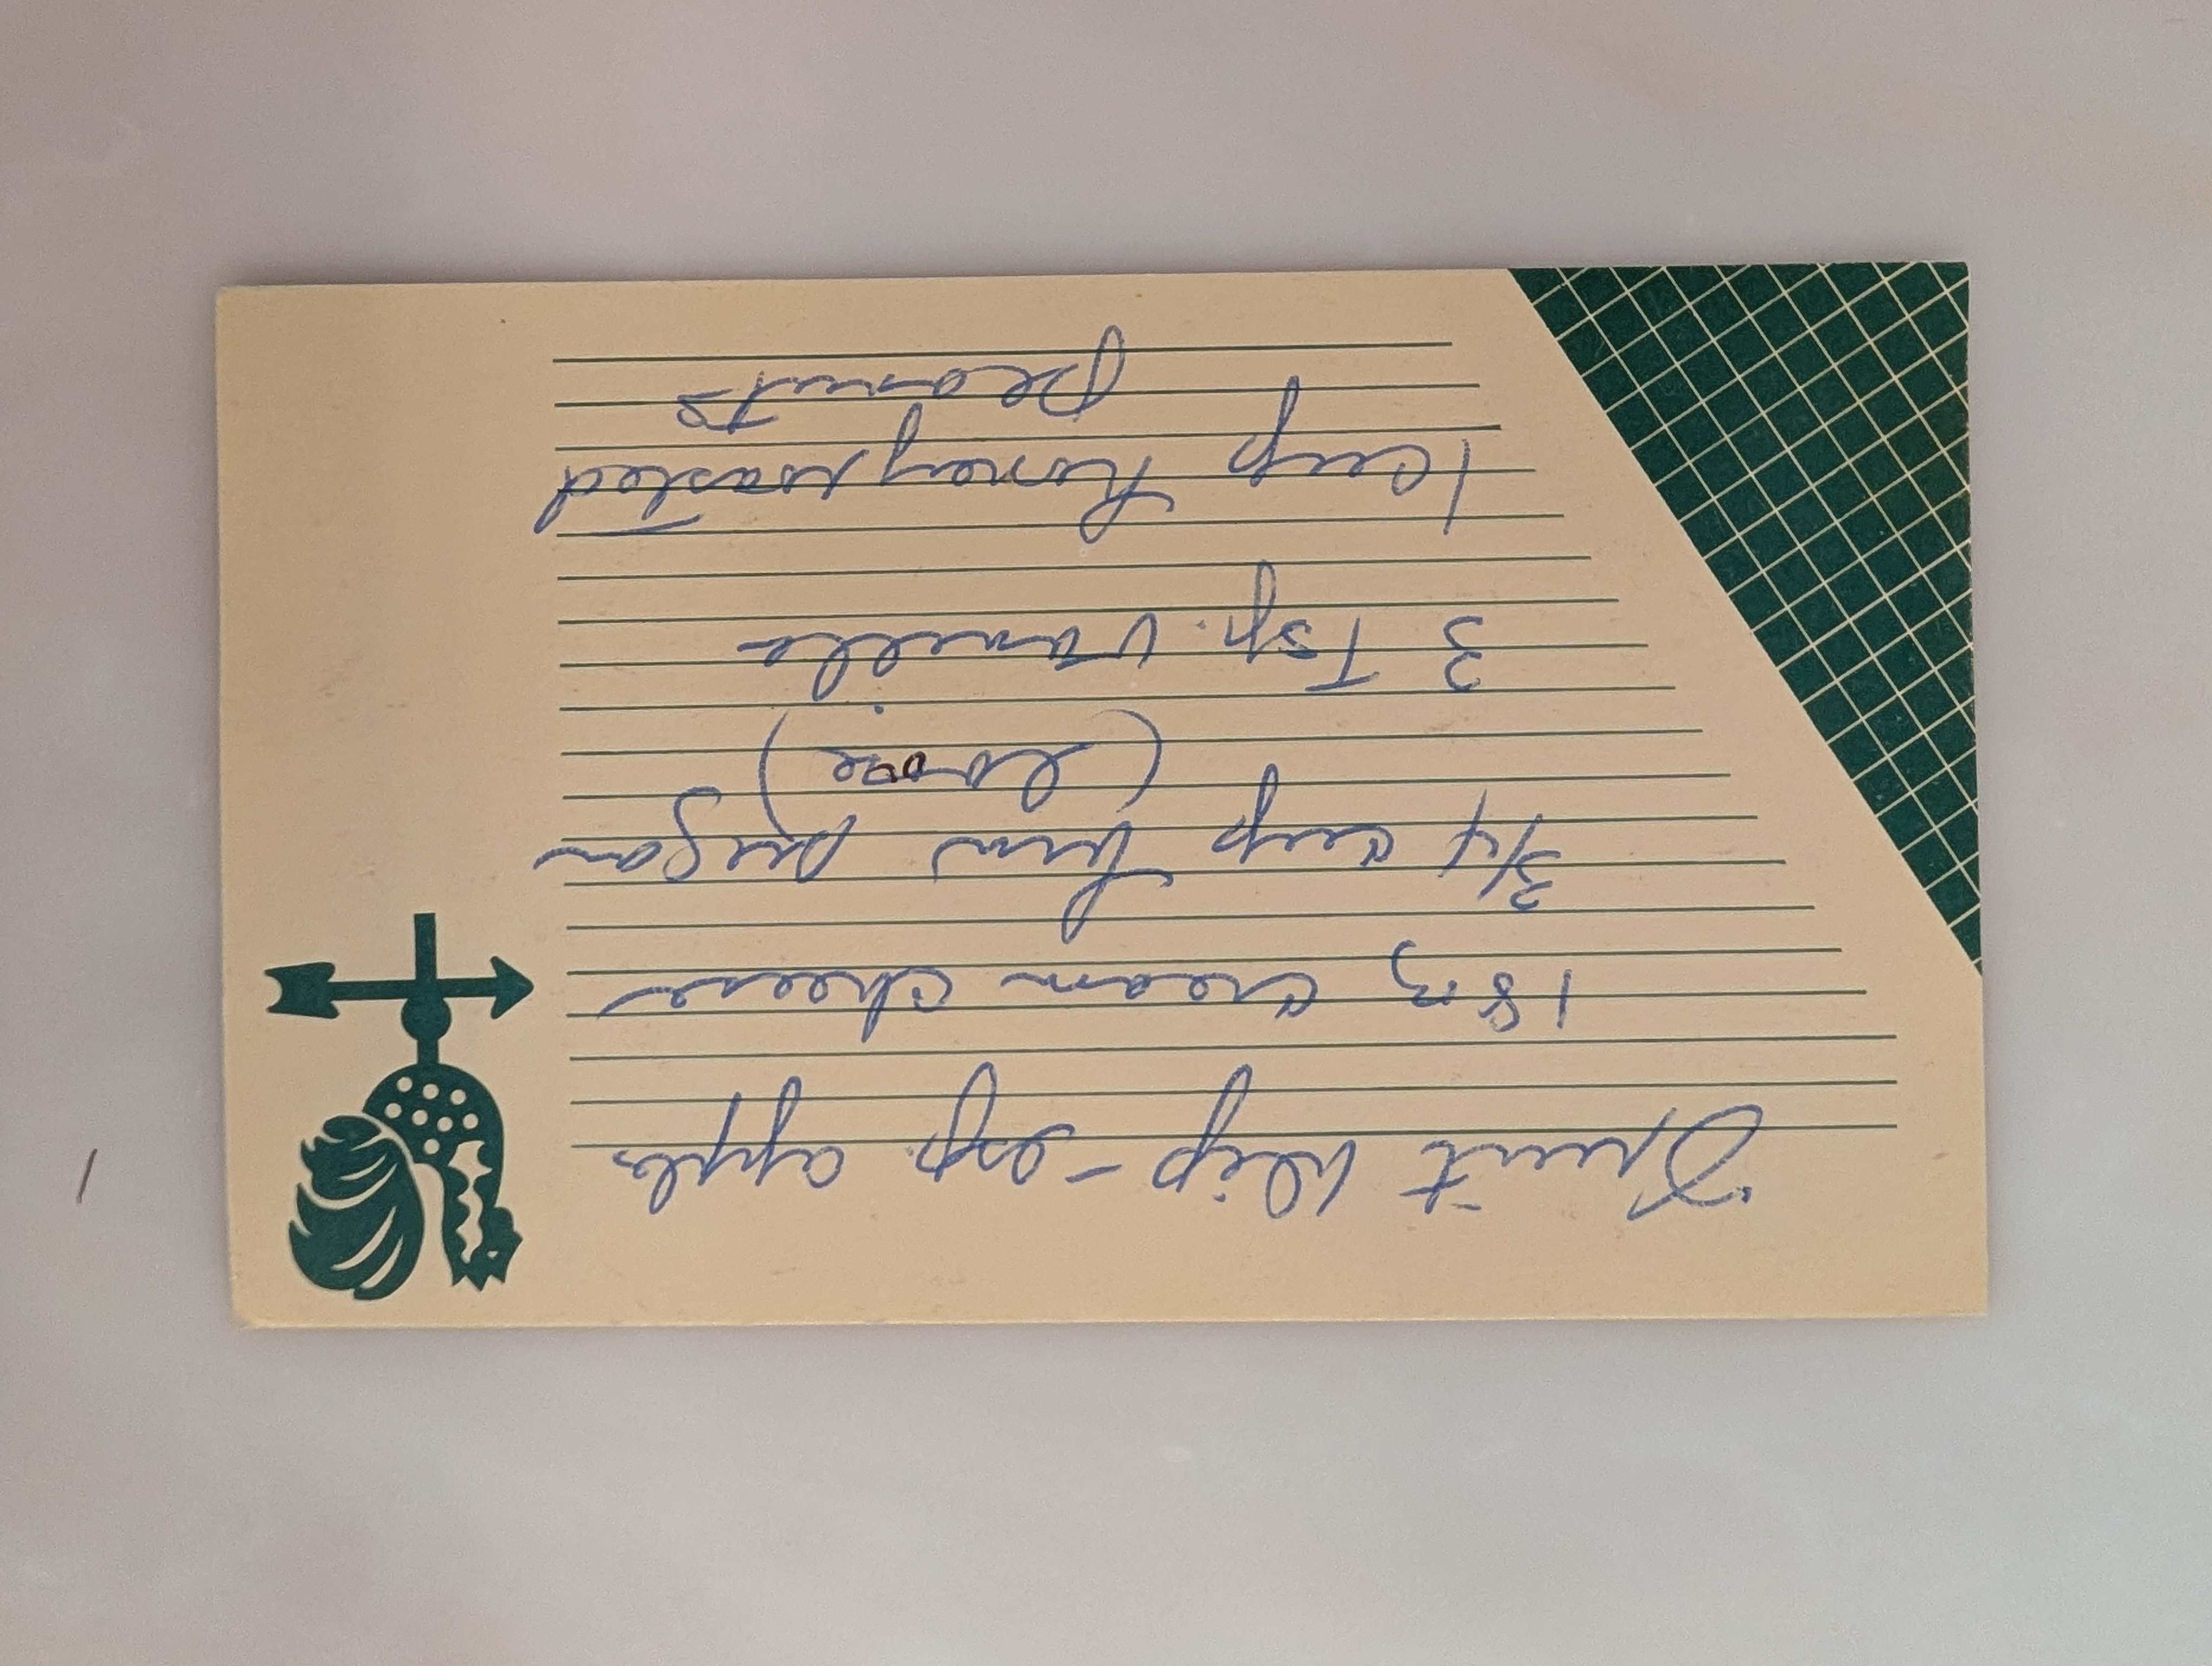 Fruit Dip - esp. apples
1 8 oz cream cheese
3/4 cup brn sugar
(loose)
3 Tsp. vanilla
1 cup honey roasted
peanuts